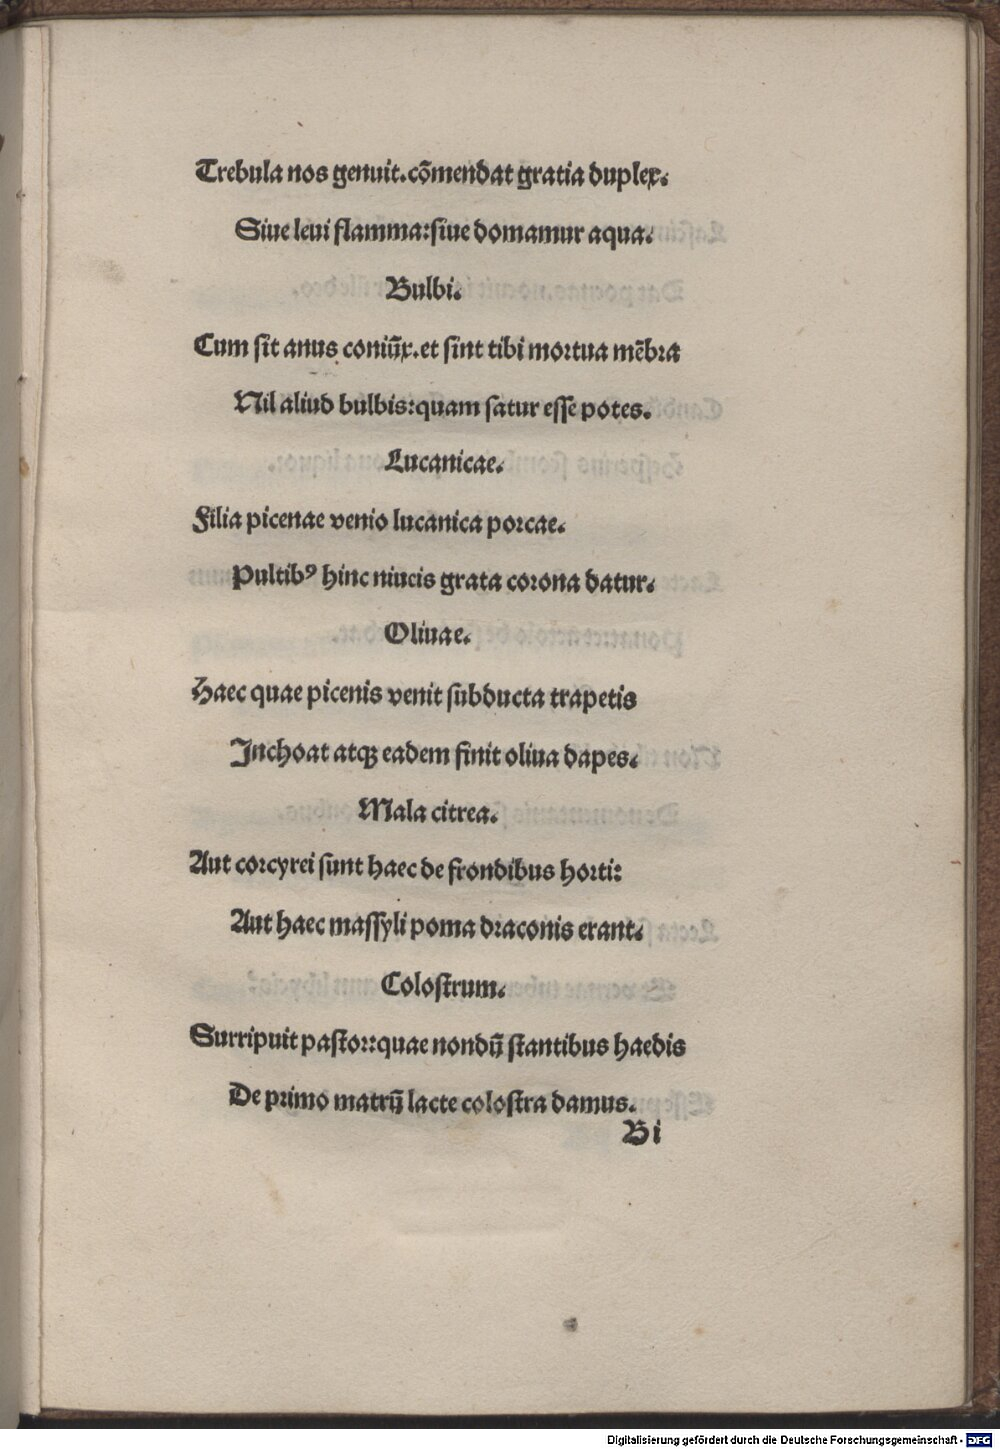 Trebula nos genuit.cõmendat gratia duplex.
Siue leui flamma:siue domamur aqua.
Bulbi.
Cum sit anus coniũx.et sint tibi mortua mẽbra
Nil aliud bulbis:quam satur esse potes.
Lucanicae.
Filia picenae venio lucanica porcae.
Pultibꝰ hinc niueis grata corona datur.
Oliuae.
Haec quae picenis venit subducta trapetis
Inchoat atqꝫ eadem finit oliua dapes.
Mala citrea.
Aut corcyrei sunt haec de frondibus horti:
Aut haec massyli poma draconis erant.
Colostrum.
Surripuit pastor:quae nondũ stantibus haedis
De primo matrũ lacte colostra damus.
Bi
Digitalisierung gefördert durch die Deutsche Forschungsgemeinschaft - DFG